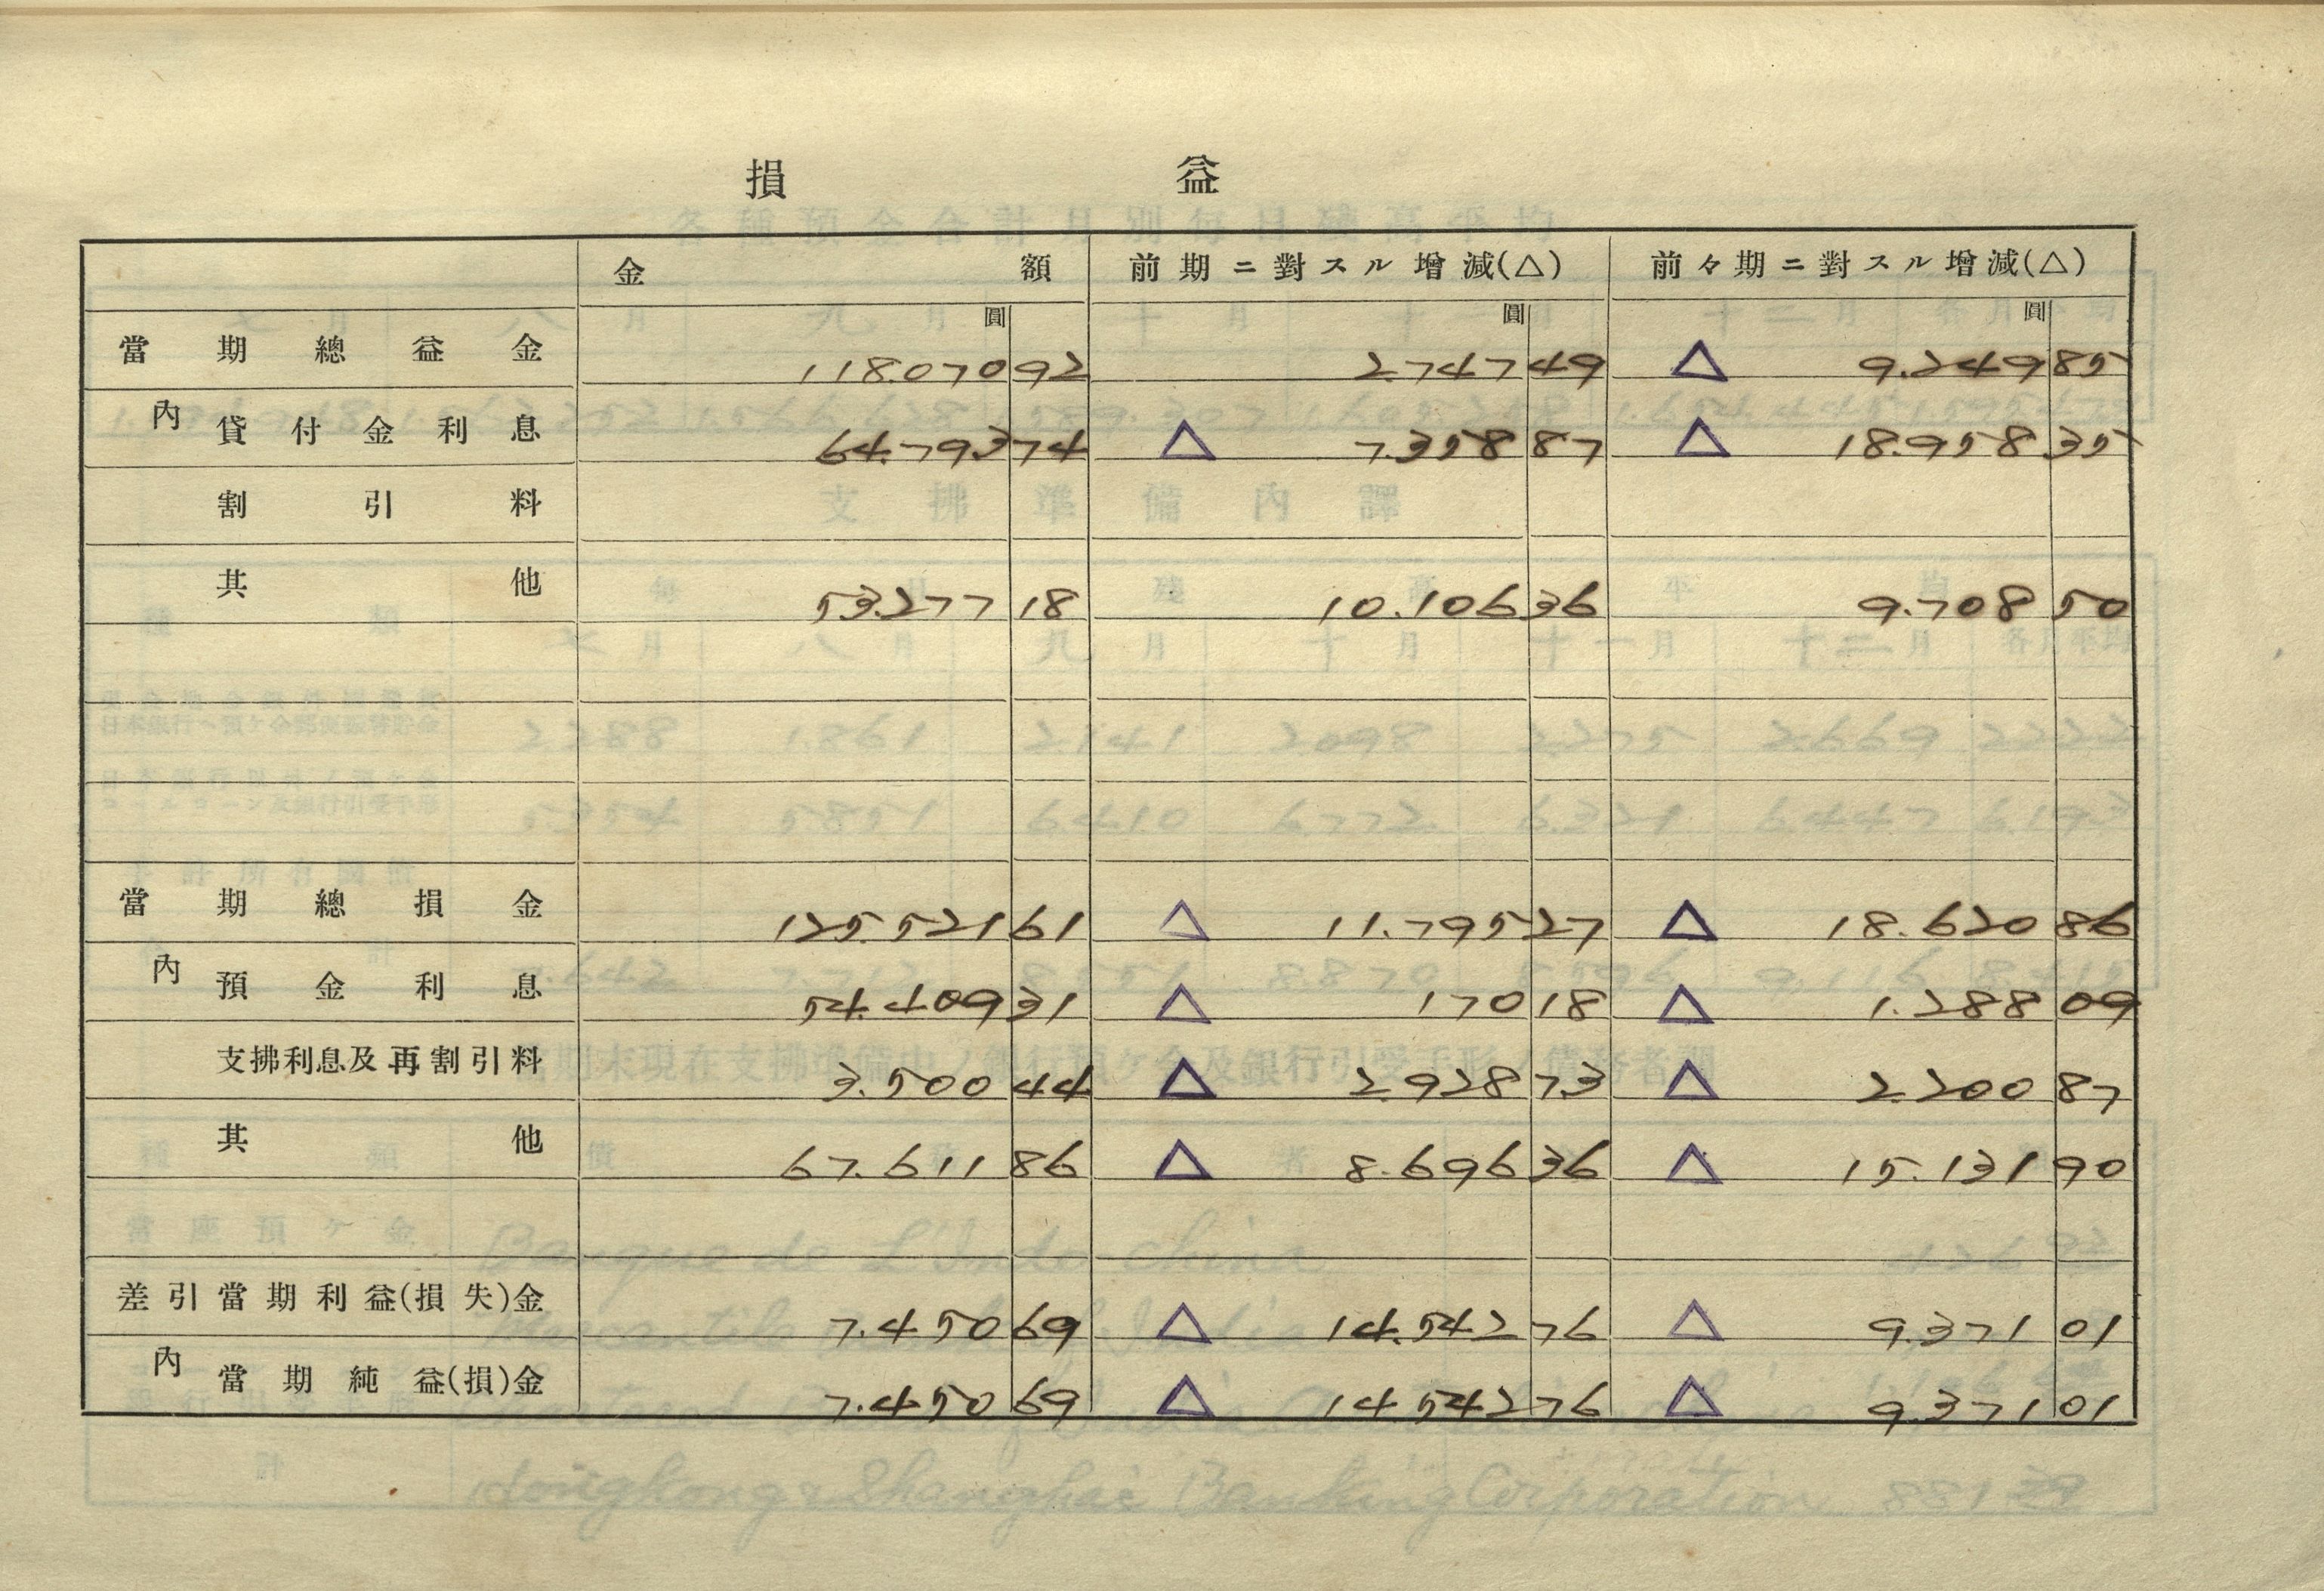 損益
金額 前期ニ對スル增減(△) 前々期ニ對スル增減(△)
圓 圓 圓
當期總益金 118.070 92 2.747 49 △ 9.249 85
內 貸付金利息 64.793 74 △ 7.358 87 △ 18.958 35
割引料
其他 53.277 18 10.106 36 9.708 50
當期總損金 125.521 61 △ 11.795 27 △ 18.620 86
內 預金利息 54.409 31 △ 170 18 △ 1.288 09
支拂利息及再割引料 3.500 44 △ 2.928 73 △ 2.200 87
其他 67.611 86 △ 8.696 36 △ 15.131 90
差引當期利益(損失)金 7.450 69 △ 14.542 76 △ 9.371 01
內 當期純益(損)金 7.450 69 △ 14.542 76 △ 9.371 01